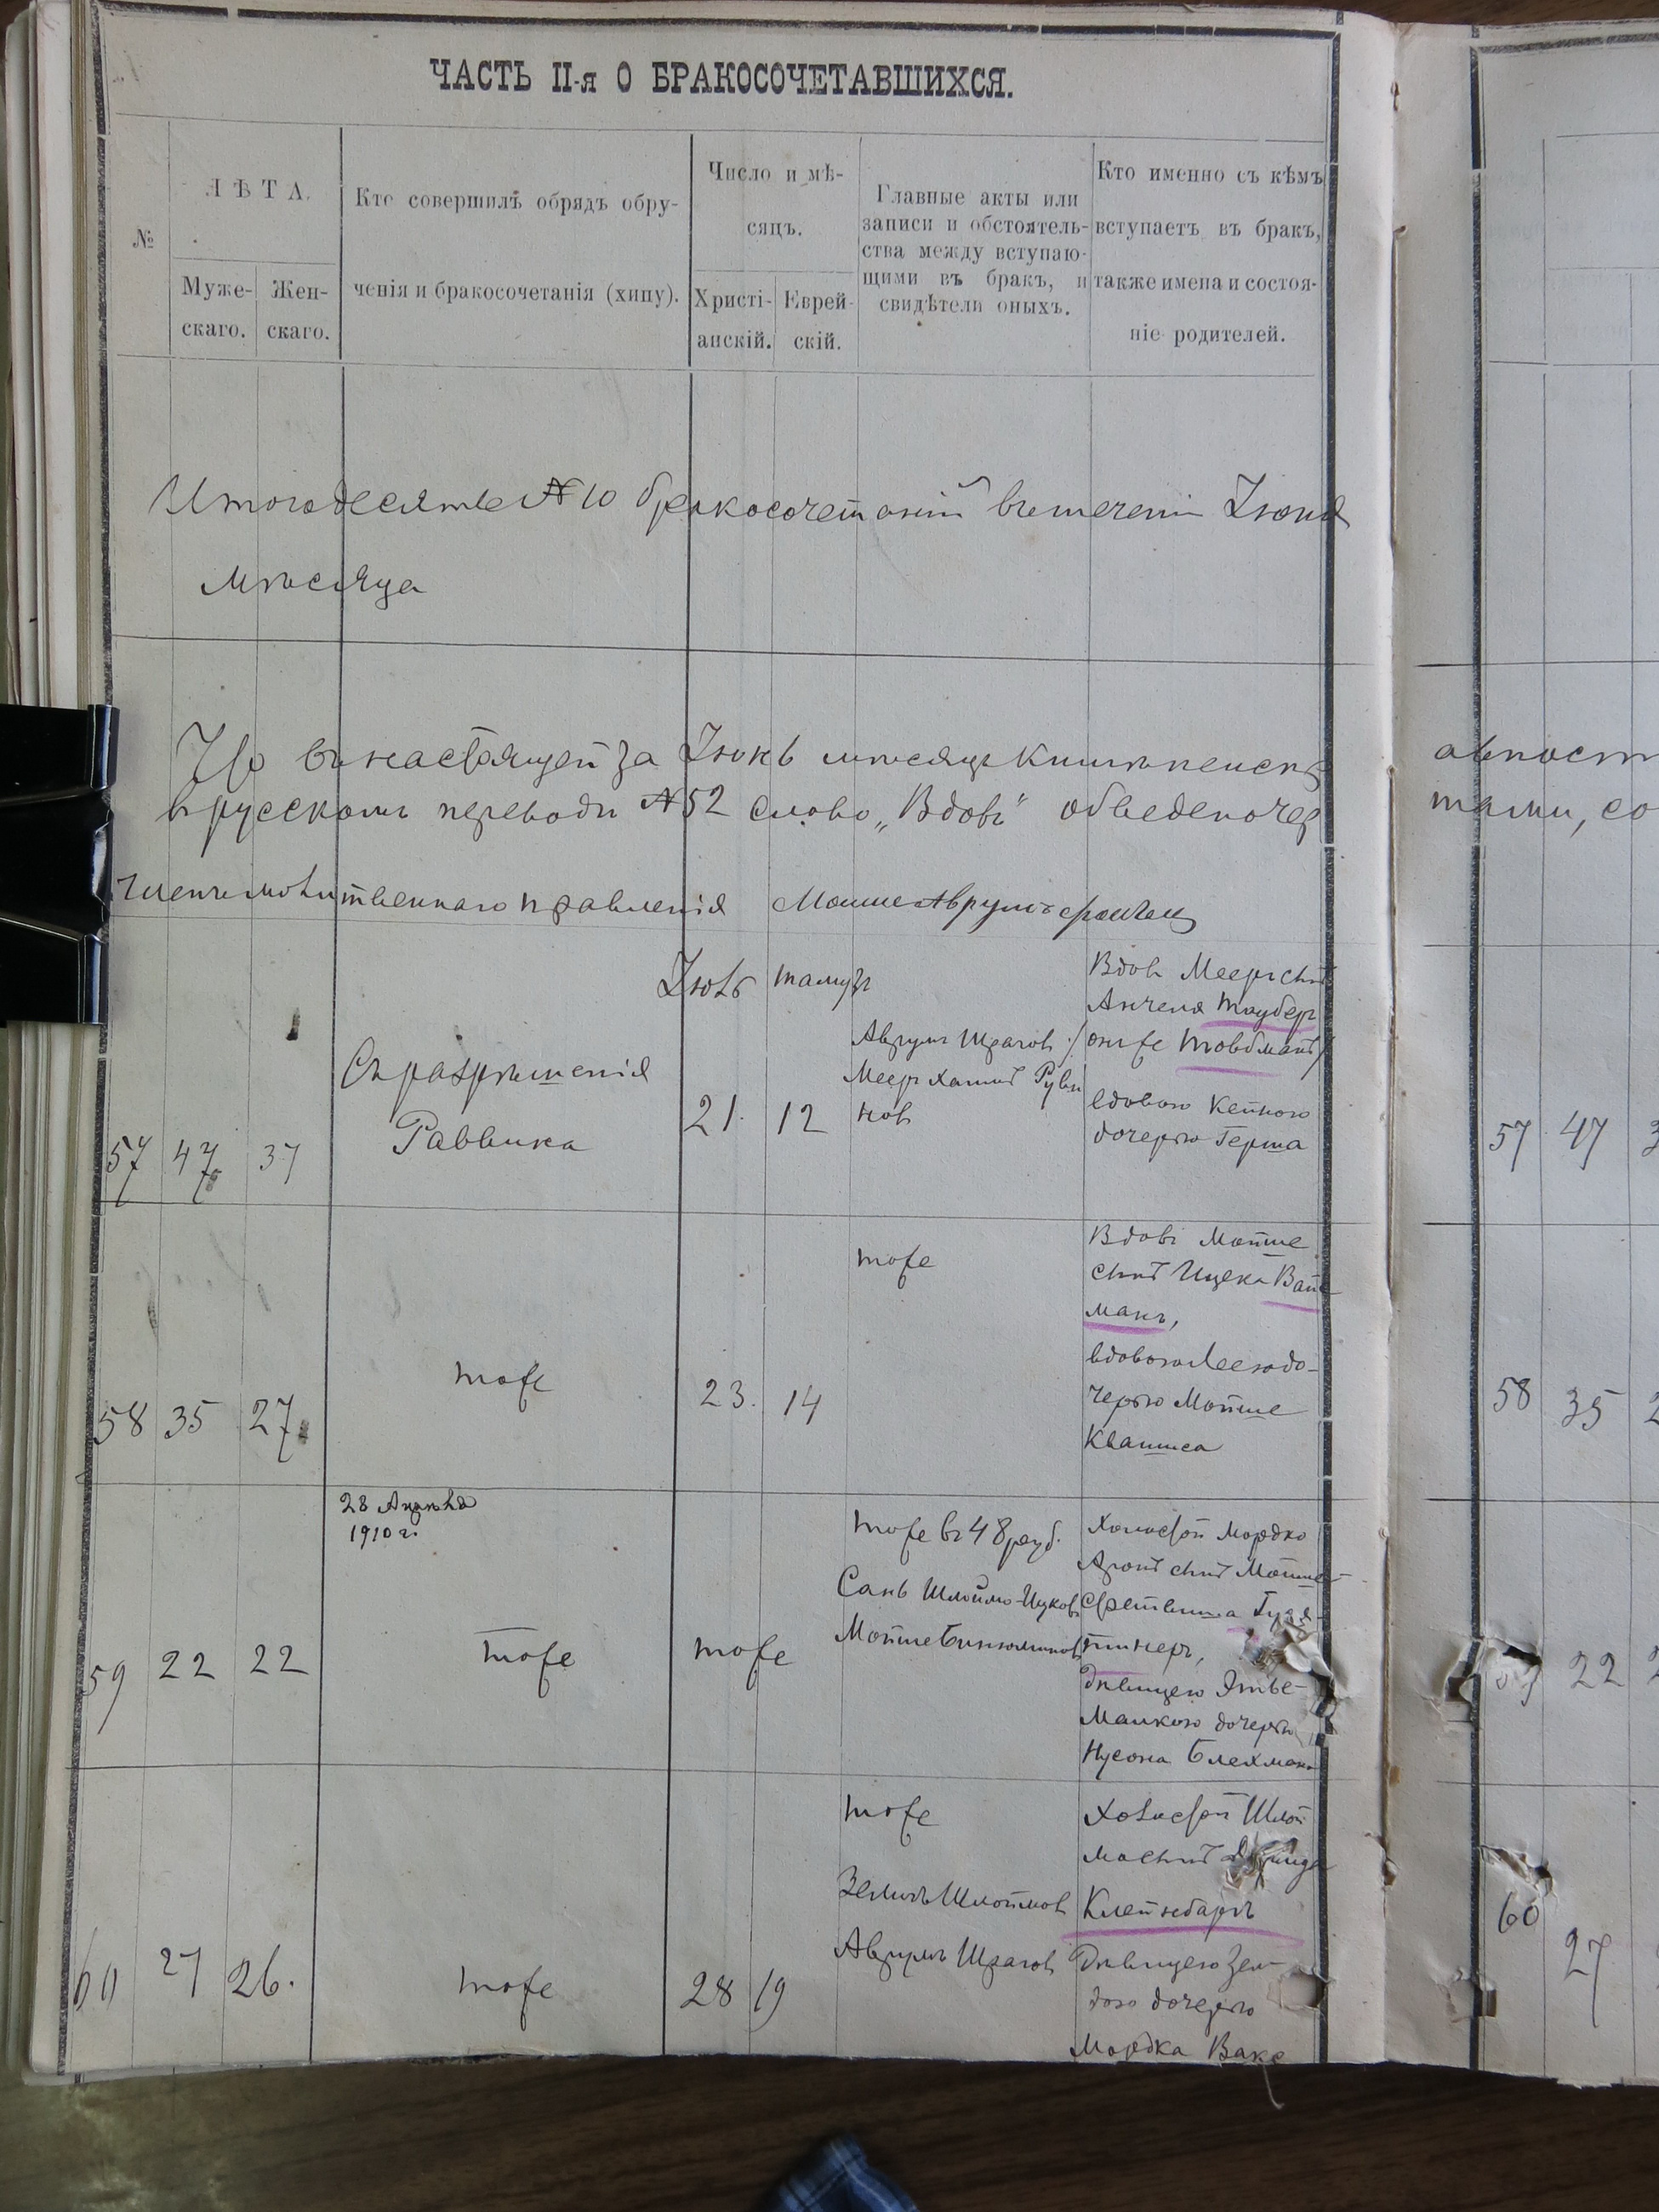 ЧАСТЬ II-я О БРАКОСОЧЕТАВШИХСЯ.
№
ЛѢТА.
Муже-
скаго.
Жен-
скаго.
Кто совершилъ обрядъ обру-
ченія и бракосочетанія (хипу).
Число и мѣ-
сяцъ.
Христі-
анскій.
Еврей-
скій.
Главные акты или
записи и обстоятель-
ства между вступаю-
щими въ бракъ, и
свидѣтели оныхъ.
Кто именно съ кѣмъ
вступаетъ въ бракъ,
также имена и состоя-
ніе родителей.
Итого десять № 10 бракосочетаній въ теченіи Іюня
мѣсяца
Что въ настоящей за Іюнь мѣсяцъ книгѣ
въ русскомъ переводѣ № 52 слово „Вдовъ" обведено чер
Членъ молитвеннаго правленія Мошке Аврумъ
Іюль тамузъ
57 47 37
Съ разрѣшенія
Раввина
21. 12
Аврумъ Шраговъ
Мееръ Хаимъ Руви
новъ
Вдовъ Мееръ сынъ
Анчеля Тауберъ
онже Товбманъ
вдовою Кейною
дочерью Герша
58 35 27
тоже
23. 14
тоже
Вдовъ Мойше
сынъ Ицека Вайс
манъ,
вдовою Леею до-
черью Мойше
Квашиса
28
1910 г.
59 22 22
тоже
тоже
тоже въ 48 руб.
Сань Шлоймо-Ицковъ
Мойше Биньюминовъ
Холостой Мордко
Аронъ сынъ Мойше
дѣвицею Этье-
Малкою дочерью
Нусона Блехмана
60 27 26.
тоже
28 19
тоже
Зелигъ Шлоймовъ
Аврумъ Шраговъ
Холостой Шлой
ма сынъ
Клейнбаръ
Дѣвицею Зел-
дою дочерью
Мордка Вакс
авност
тами, со
57 47 3
58 35 2
22 2
60
27